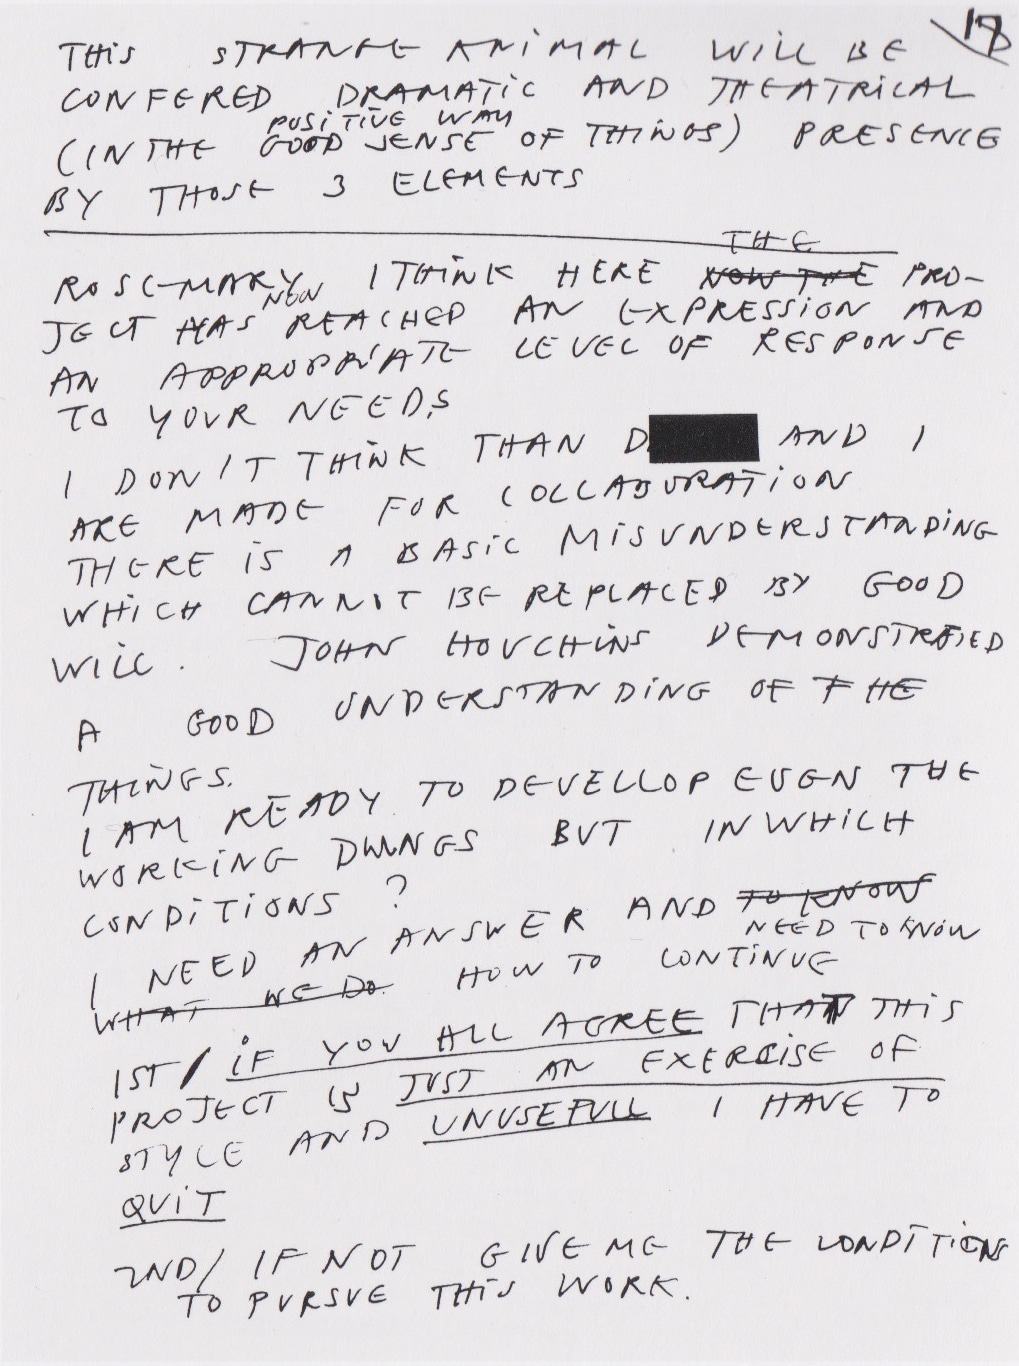 18
THIS STRANGE ANIMAL WILL BE
CONFERED DRAMATIC AND THEATRICAL
POSITIVE WAY
(IN THE GOOD SENSE OF THINGS) PRESENCE
BY THOSE 3 ELEMENTS
THE
ROSE-MARY, I THINK HERE NOW THE PRO-
NOW
JECT HAS REACHED AN EXPRESSION AND
AN APPROPRIATE LEVEL OF RESPONSE
TO YOUR NEEDS
I DON'T THINK THAN D AND I
ARE MADE FOR COLLABORATION
THERE IS A BASIC MISUNDERSTANDING
WHICH CANNOT BE REPLACED BY GOOD
WILL. JOHN HOUCHINS DEMONSTRATED
A GOOD UNDERSTANDING OF THE
THINGS.
I AM READY TO DEVELLOP EVEN THE
WORKING DWINGS BUT IN WHICH
CONDITIONS ?
I NEED AN ANSWER AND TO KNOW
NEED TO KNOW
WHAT WE DO. HOW TO CONTINUE
1ST/ IF YOU ALL AGREE THAT THIS
PROJECT IS JUST AN EXERCISE OF
STYLE AND UNUSEFULL I HAVE TO
QUIT
2ND/ IF NOT GIVE ME THE CONDITIONS
TO PURSUE THIS WORK.